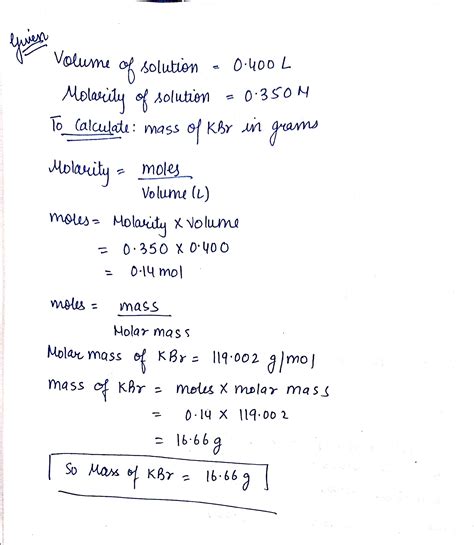 Given
Volume of solution = 0.400 L
Molarity of solution = 0.350 M
To Calculate: mass of KBr in grams
Molarity = moles
Volume (L)
moles = Molarity x volume
= 0.350 x 0.400
= 0.14 mol
moles = mass
Molar mass
Molar mass of KBr = 119.002 g/mol
mass of KBr = moles x molar mass
= 0.14 x 119.002
= 16.66 g
So Mass of KBr = 16.66 g